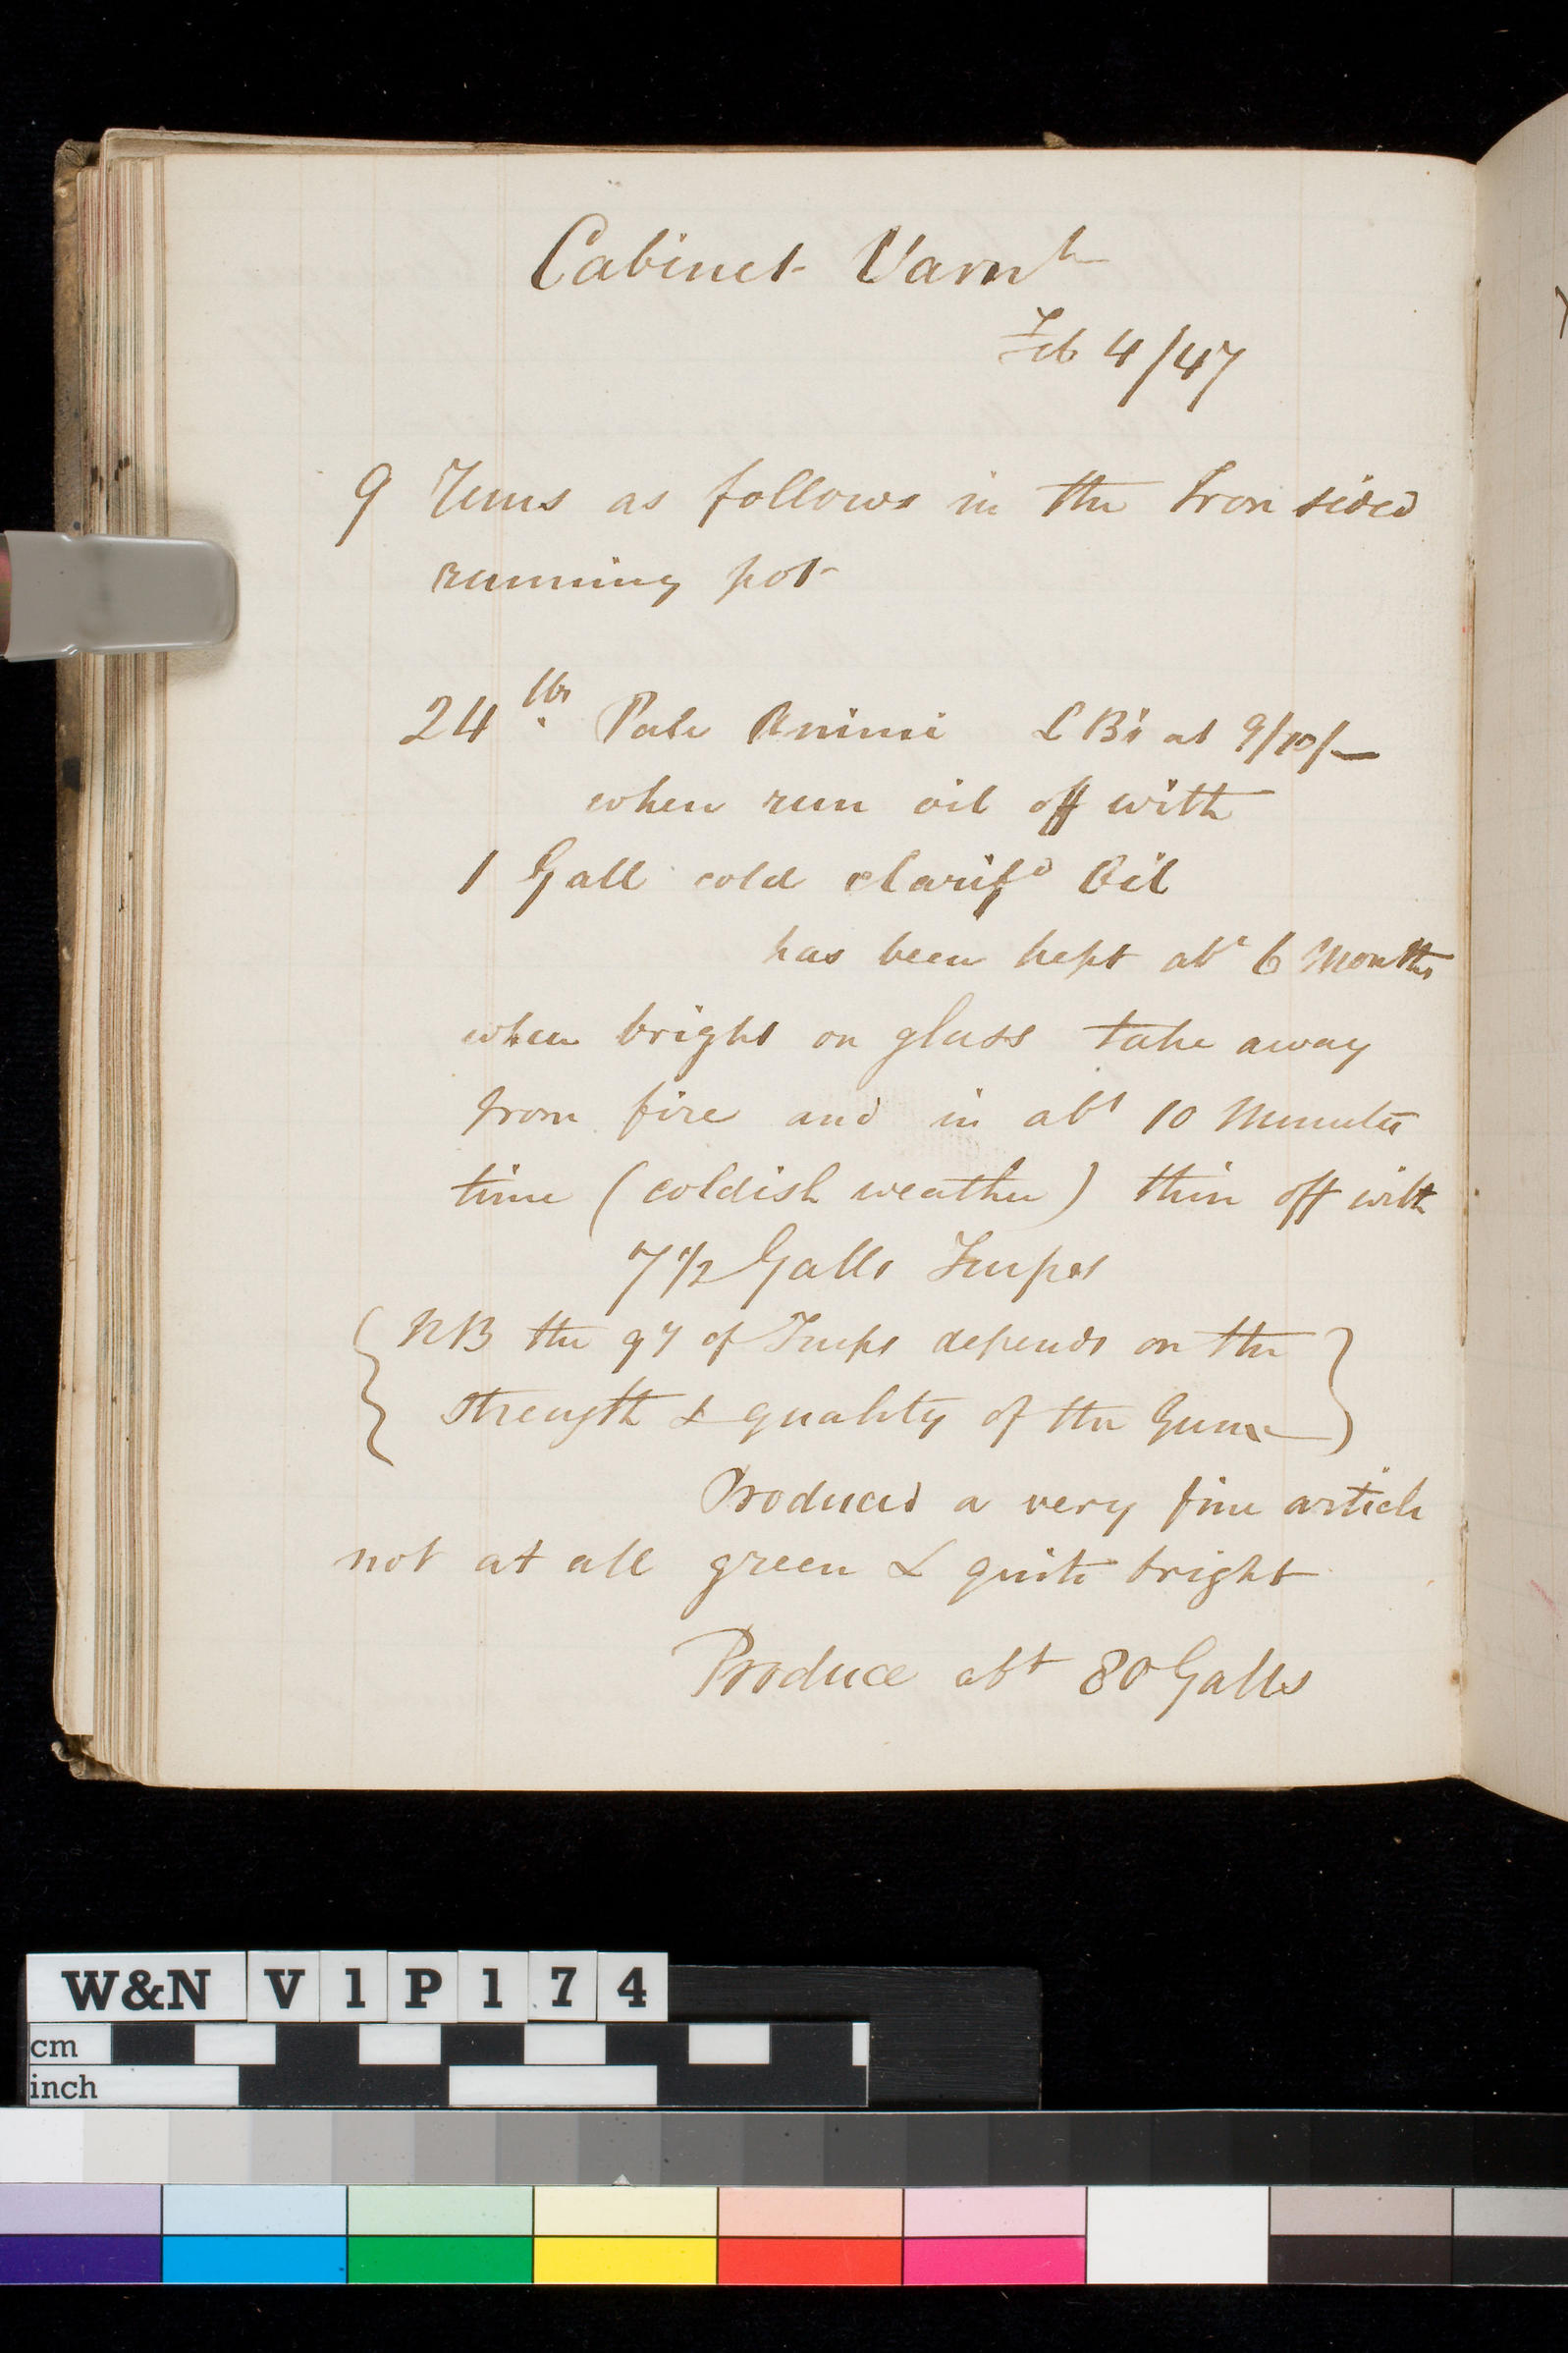 Cabinet Varnh
Feb 4/47
9 Runs as follows in the Iron sided
running pot
24 lbs Pale Animi LB's at 9/10/—
when run oil off with
1 Gall cold clarifd Oil
has been kept abt 6 Months
when bright on glass take away
from fire and in abt 10 Minutes
time (coldish weather) thin off with
7 1/2 Galls Turps
{NB the qy of Turps depends on the
strength & quality of the Gum}
Produced a very fine article
not at all green & quite bright
Produce abt 80 Galls
W&N V1P174
cm
inch